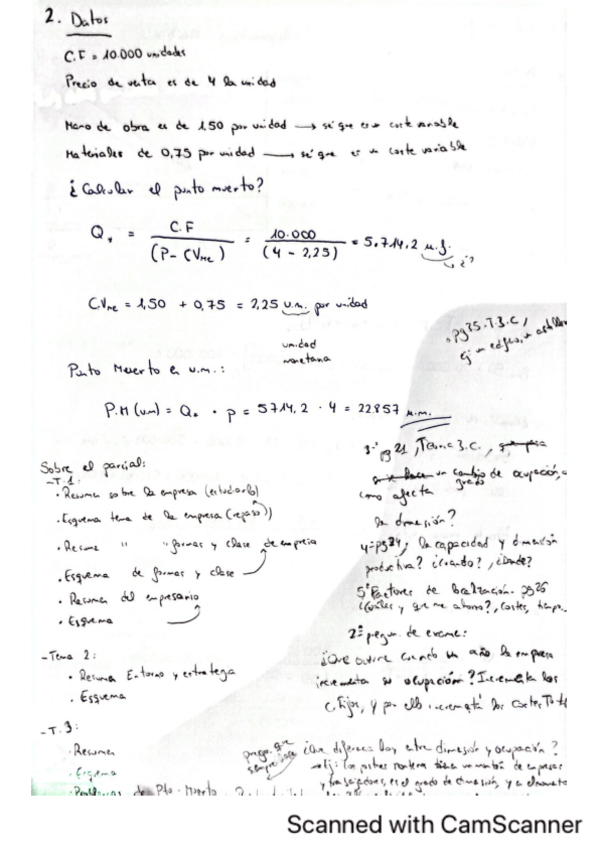 2. Datos
C.F = 10.000 unidades
Precio de venta es de 4 la unidad
Mano de obra es de 1,50 por unidad → sé que es un coste variable
Materiales de 0,75 por unidad → sé que es un coste variable
¿Calcular el punto muerto?
Q* = C.F / (P - CVMe) = 10.000 / (4 - 2,25) = 5.714,2 u.f.
¿?
CVMe = 1,50 + 0,75 = 2,25 u.m. por unidad
unidad
monetaria
Punto Muerto en u.m.:
P.M (um) = Q* · p = 5714,2 · 4 = 22857 u.m.
pg 35. T.3.C,
Sobre el parcial:
- T.1:
· Resumen sobre la empresa (estudiarlo)
· Esquema tema de la empresa (repaso)
· Resume " " formas y clase de empresa
· Esquema de formas y clase
· Resumen del empresario
· Esquema
- Tema 2:
· Resumen Entorno y estrategia
· Esquema
- T.3:
· Resumen
· Esquema
· Problemas de Pto. Muerto
3º pg 21, Tema 3.C,
un cambio de ocupación,
grado
como afecta
la dimensión?
4º pg 24, la capacidad y dimensión
productiva? ¿cuando?, ¿donde?
5º Factores de localización. pg 26
¿Cuáles y que me ahorro?, costes, tiempo..
2º pregun. de examen:
¿Que ocurre cuando un año la empresa
incrementa su ocupación? Incrementa los
C. Fijos, y por ello incrementa los costes Tot
pregu. que
siempre
¿Que diferencia hay entre dimensión y ocupación?
y trabajadores, es el grado de dimensión, y
Scanned with CamScanner